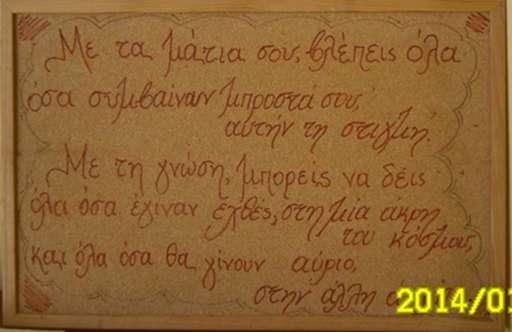 Με τα μάτια σου, βλέπεις όλα
όσα συμβαίνουν μπροστά σου,
αυτήν τη στιγμή.
Με τη γνώση, μπορείς να δεις
όλα όσα έγιναν εχθές, στη μία άκρη
του κόσμου,
και όλα όσα θα γίνουν αύριο,
στην άλλη
2014/01